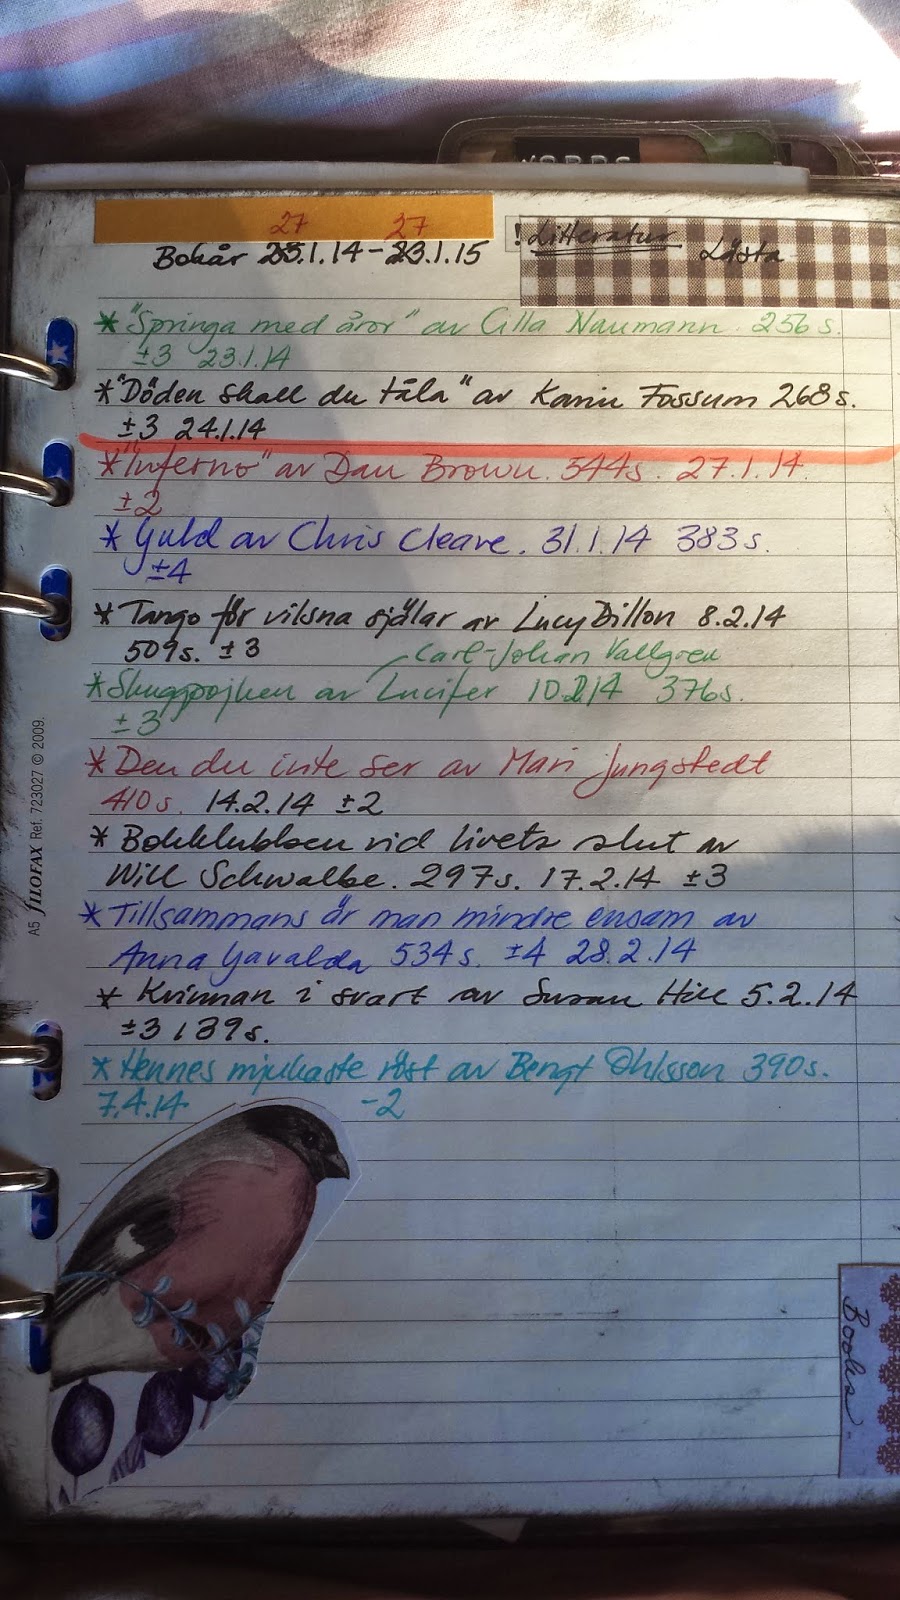 WORDS
27 27
Bokår 23.1.14-23.1.15
! Litteratur Lästa
* "Springa med åror" av Cilla Naumann 256 s.
±3 23.1.14
* "Döden skall du tåla" av Karin Fossum 268s.
±3 24.1.14
* "Inferno" av Dan Brown. 544s. 27.1.14.
±2
* Guld av Chris Cleave. 31.1.14 383 s.
±4
* Tango för vilsna själar av Lucy Dillon 8.2.14
509s. ±3
Carl-Johan Vallgren
* Skuggpojken av Lucifer 10.2.14 376s.
±3
* Den du inte ser av Mari Jungstedt
410 s. 14.2.14 ±2
* Bokklubben vid livets slut av
Will Schwalbe. 297s. 17.2.14 ±3
* Tillsammans är man mindre ensam av
Anna Gavalda 534 s. ±4 28.2.14
* Kvinnan i svart av Susan Hill 5.2.14
±3 139s.
* Hennes mjukaste röst av Bengt Ohlsson 390s.
7.4.14 -2
A5 FILOFAX Ref. 723027 © 2009.
Books